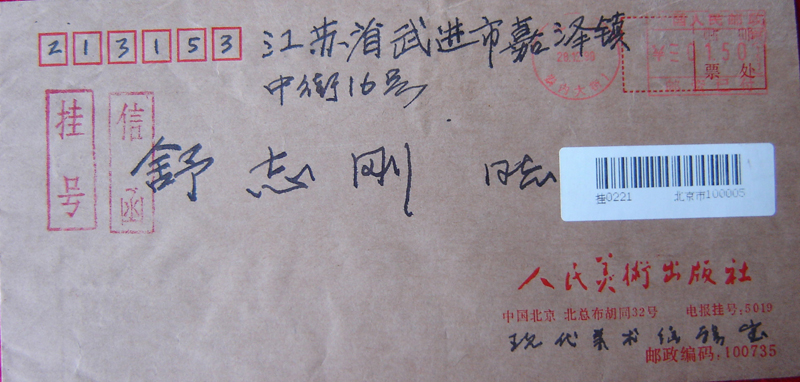 213153
江苏省武进市嘉泽镇
中街16号
舒志刚 同志
挂号
信函
邮
票 处
¥20150
挂0221 北京市100005
人民美術出版社
中国北京 北总布胡同32号 电报挂号:5019
现代美术编辑室
邮政编码:100735